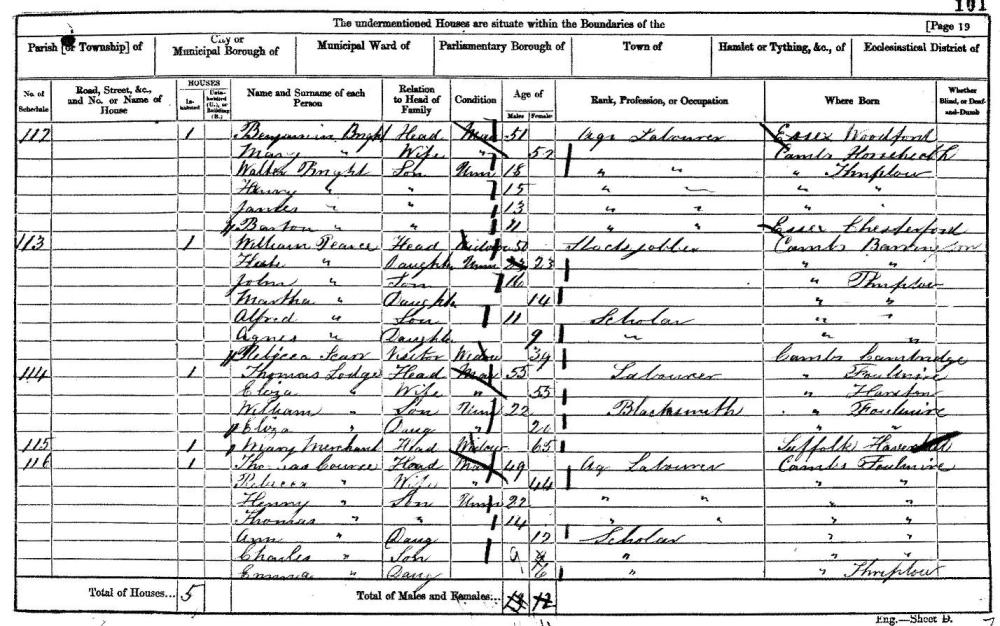 101
The undermentioned Houses are situate within the Boundaries of the
[Page 19
Parish [or Township] of City or Municipal Borough of Municipal Ward of Parliamentary Borough of Town of Hamlet or Tything, &c., of Ecclesiastical District of
No. of Schedule Road, Street, &c., and No. or Name of House HOUSES Inhabited Uninhabited (U.), or Building (B.) Name and Surname of each Person Relation to Head of Family Condition Age of Males Females Rank, Profession, or Occupation Where Born Whether Blind, or Deaf-and-Dumb
112 1 Benjamin Bright Head Mar 51 Ag. Labourer Essex Woodford
Mary " Wife " 52 Cambs Horseheath
Walter Bright Son Unm 18 " " " Thriplow
Henry " " 15 " " " "
James " " 13 " " " "
Barton " " 11 " " Essex Chesterford
113 1 William Pearce Head Widower 50 Cambs Barrington
" Daughter Unm 23 " "
John " Son 16 " Thriplow
Martha " Daughter 14 " "
Alfred " Son 11 Scholar " "
Agnes " Daughter 9 " " "
Rebecca Visitor 39 Cambs Cambridge
114 1 Thomas Lodge Head Mar 55 Labourer " Foulmire
Eliza " Wife " 53 " Harston
William " Son Unm 22 Blacksmith " Foulmire
Eliza " Daug 20 " "
115 1 Mary Merchant Head Widow 65 Suffolk Haverhill
116 1 Thomas Head Mar 49 Ag Labourer Cambs Foulmire
Rebecca " Wife " 44 " "
Henry " Son Unm 22 " " " "
Thomas " " 14 " " " "
Ann " Daug 12 Scholar " "
Charles " Son 9 " " "
Emma " Daug 6 " " Thriplow
Total of Houses... 5 Total of Males and Females... 12
Eng.—Sheet D.